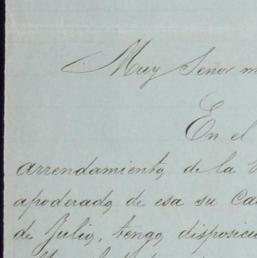 Muy Señor m
En el
arrendamiento de la
apoderado de esa su Ca
de Julio, tengo disposici